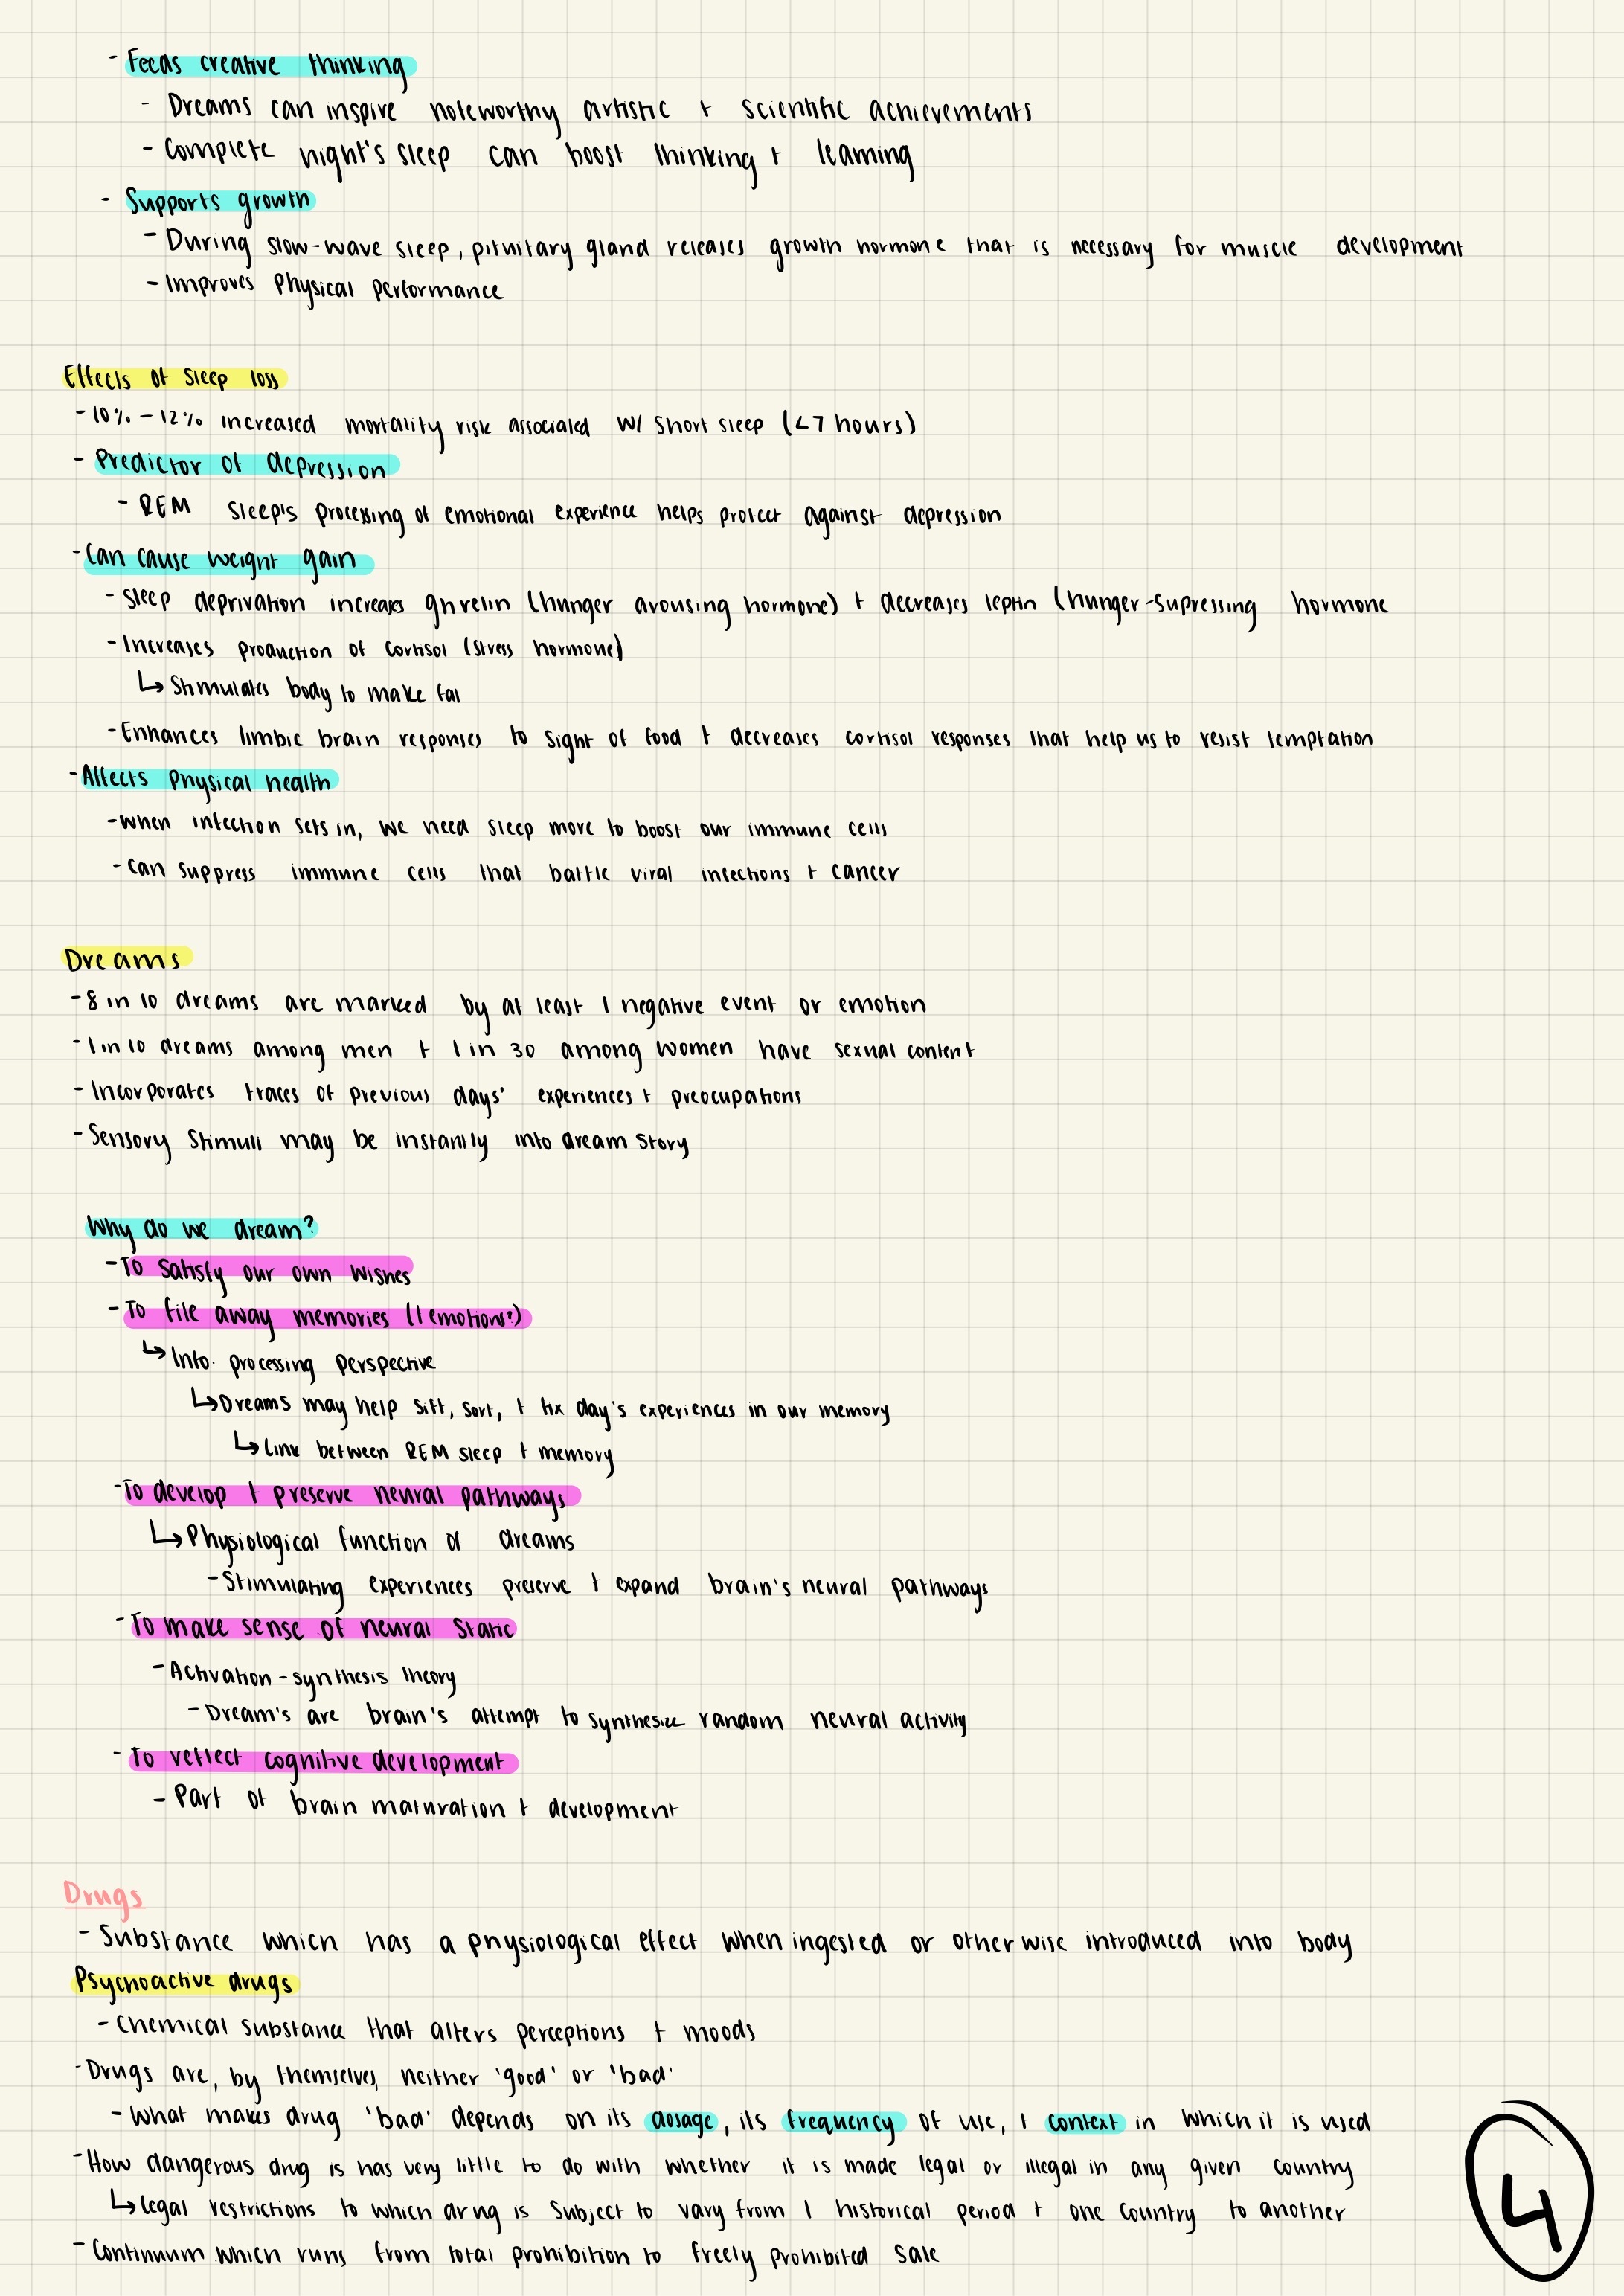 - Feeds creative thinking
- Dreams can inspire noteworthy artistic + scientific achievements
- Complete night's sleep can boost thinking + learning
- Supports growth
- During slow-wave sleep, pituitary gland releases growth hormone that is necessary for muscle development
- Improves physical performance
Effects of sleep loss
- 10% - 12% increased mortality risk associated w/ short sleep (<7 hours)
- Predictor of depression
- REM sleep's processing of emotional experience helps protect against depression
- Can cause weight gain
- Sleep deprivation increases ghrelin (hunger arousing hormone) + decreases leptin (hunger-supressing hormone
- Increases production of cortisol (stress hormone)
↳ Stimulates body to make fat
- Enhances limbic brain responses to sight of food + decreases cortisol responses that help us to resist temptation
- Affects physical health
- When infection sets in, we need sleep more to boost our immune cells
- Can suppress immune cells that battle viral infections + cancer
Dreams
- 8 in 10 dreams are marked by at least 1 negative event or emotion
- 1 in 10 dreams among men + 1 in 30 among women have sexual content
- Incorporates traces of previous days' experiences + preocupations
- Sensory stimuli may be instantly into dream story
Why do we dream?
- To satisfy our own wishes
- To file away memories (+ emotions?)
↳ Info. processing perspective
↳ Dreams may help sift, sort, + fix day's experiences in our memory
↳ Link between REM sleep + memory
- To develop + preserve neural pathways
↳ Physiological function of dreams
- Stimulating experiences preserve + expand brain's neural pathways
- To make sense of neural static
- Activation-synthesis theory
- Dream's are brain's attempt to synthesize random neural activity
- To reflect cognitive development
- Part of brain maturation + development
Drugs
- Substance which has a physiological effect when ingested or otherwise introduced into body
Psychoactive drugs
- Chemical substance that alters perceptions + moods
- Drugs are, by themselves, neither 'good' or 'bad'
- What makes drug 'bad' depends on its dosage, its frequency of use, + context in which it is used
- How dangerous drug is has very little to do with whether it is made legal or illegal in any given country
↳ Legal restrictions to which drug is subject to vary from 1 historical period + one country to another
- Continuum which runs from total prohibition to freely prohibited sale
4